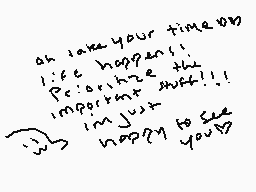 oh take your time ♡♡
life happens!!
Priorinze the
important stuff!!!
im just
happy to see
you♡